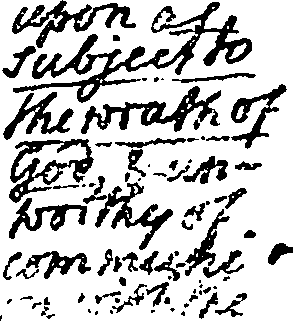 upon as
subject to
the wrath of
God, & un-
worthy of
communi
on with the